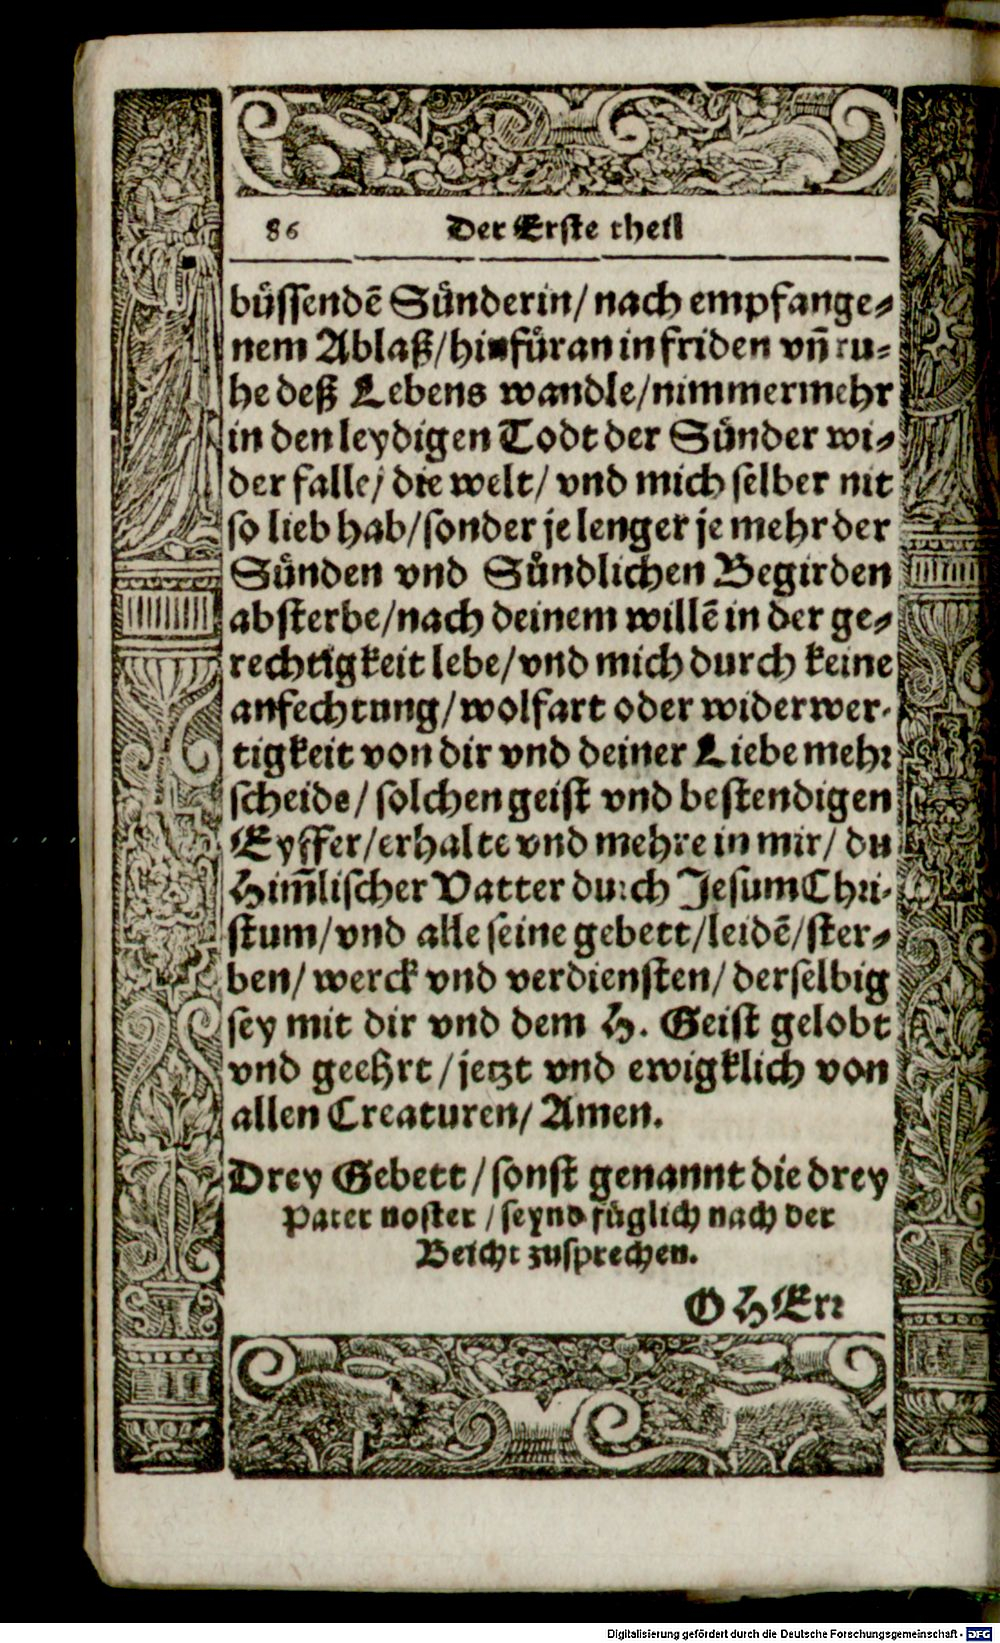 86 Der Erste theil
büssendē Sünderin/ nach empfange-
nem Ablaß/ hinfüran in friden vn̄ ru-
he deß Lebens wandle/ nimmermehr
in den leydigen Todt der Sünder wi-
der falle/ die welt/ vnd mich selber nit
so lieb hab/ sonder je lenger je mehr der
Sünden vnd Sündlichen Begirden
absterbe/ nach deinem willē in der ge-
rechtigkeit lebe/ vnd mich durch keine
anfechtung/ wolfart oder widerwer-
tigkeit von dir vnd deiner Liebe mehr
scheide/ solchen geist vnd bestendigen
Eyffer/ erhalte vnd mehre in mir/ du
Him̄lischer Vatter durch Jesum Chri-
stum/ vnd alle seine gebett/ leidē/ ster-
ben/ werck vnd verdiensten/ derselbig
sey mit dir vnd dem H. Geist gelobt
vnd geehrt/ jetzt vnd ewigklich von
allen Creaturen/ Amen.
Drey Gebett/ sonst genannt die drey
Pater noster/ seynd füglich nach der
Beicht zusprechen.
O HErr
Digitalisierung gefördert durch die Deutsche Forschungsgemeinschaft - DFG